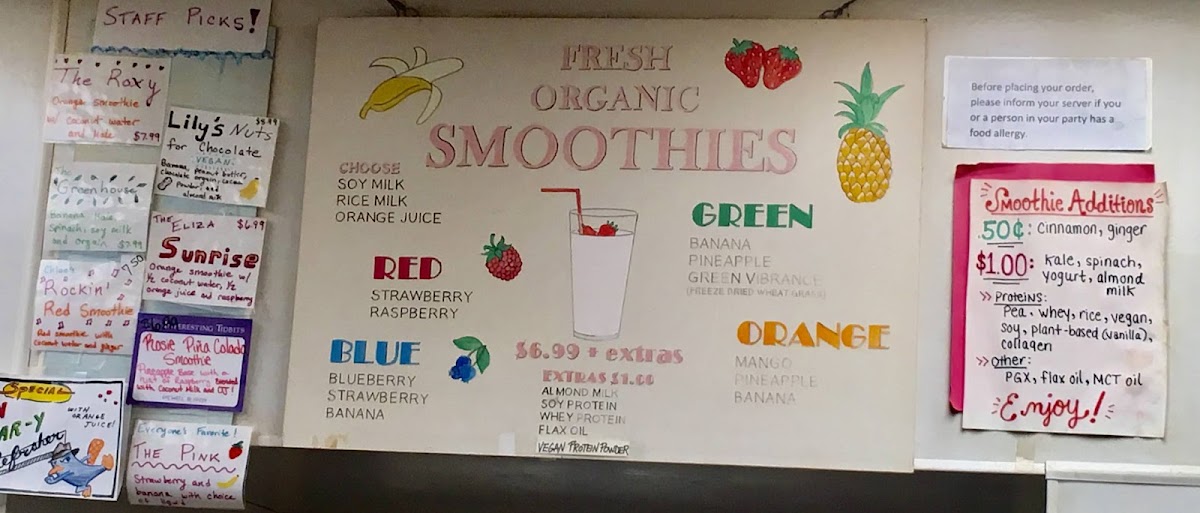 STAFF PICKS!
The Roxy
Orange smoothie
w/ coconut water
and kale
$7.99
Lily's Nuts
$8.99
for Chocolate
VEGAN:
Banana, peanut butter,
chocolate orgain, cacao
powder, and
almond milk
The
Greenhouse
Banana, Kale,
spinach, soy milk
and orgain $7.99
THE ELIZA $6.99
Sunrise
orange smoothie w/
1/2 coconut water, 1/2
orange juice and raspberry
Chloe's 7.50
Rockin'
Red Smoothie
Red smoothie with
Coconut water and ginger
INTERESTING TIDBITS
Rosie Piña Colada
Smoothie
Pineapple Base with a
Hint of Raspberry Blended
with Coconut Milk and OJ!
SPECIAL
AR-Y
WITH
ORANGE
JUICE!
Refresher
Everyone's Favorite!
THE PINK
Strawberry and
banana with choice
of liquid
FRESH
ORGANIC
SMOOTHIES
CHOOSE
SOY MILK
RICE MILK
ORANGE JUICE
RED
STRAWBERRY
RASPBERRY
BLUE
BLUEBERRY
STRAWBERRY
BANANA
GREEN
BANANA
PINEAPPLE
GREEN VIBRANCE
(FREEZE DRIED WHEAT GRASS)
ORANGE
MANGO
PINEAPPLE
BANANA
$6.99 + extras
EXTRAS $1.00
ALMOND MILK
SOY PROTEIN
WHEY PROTEIN
FLAX OIL
VEGAN PROTEIN POWDER
Before placing your order,
please inform your server if you
or a person in your party has a
food allergy.
Smoothie Additions
.50¢: cinnamon, ginger
$1.00: kale, spinach,
yogurt, almond
milk
>> Proteins:
Pea, whey, rice, vegan,
soy, plant-based (vanilla),
collagen
>> Other:
PGX, flax oil, MCT oil
Enjoy!